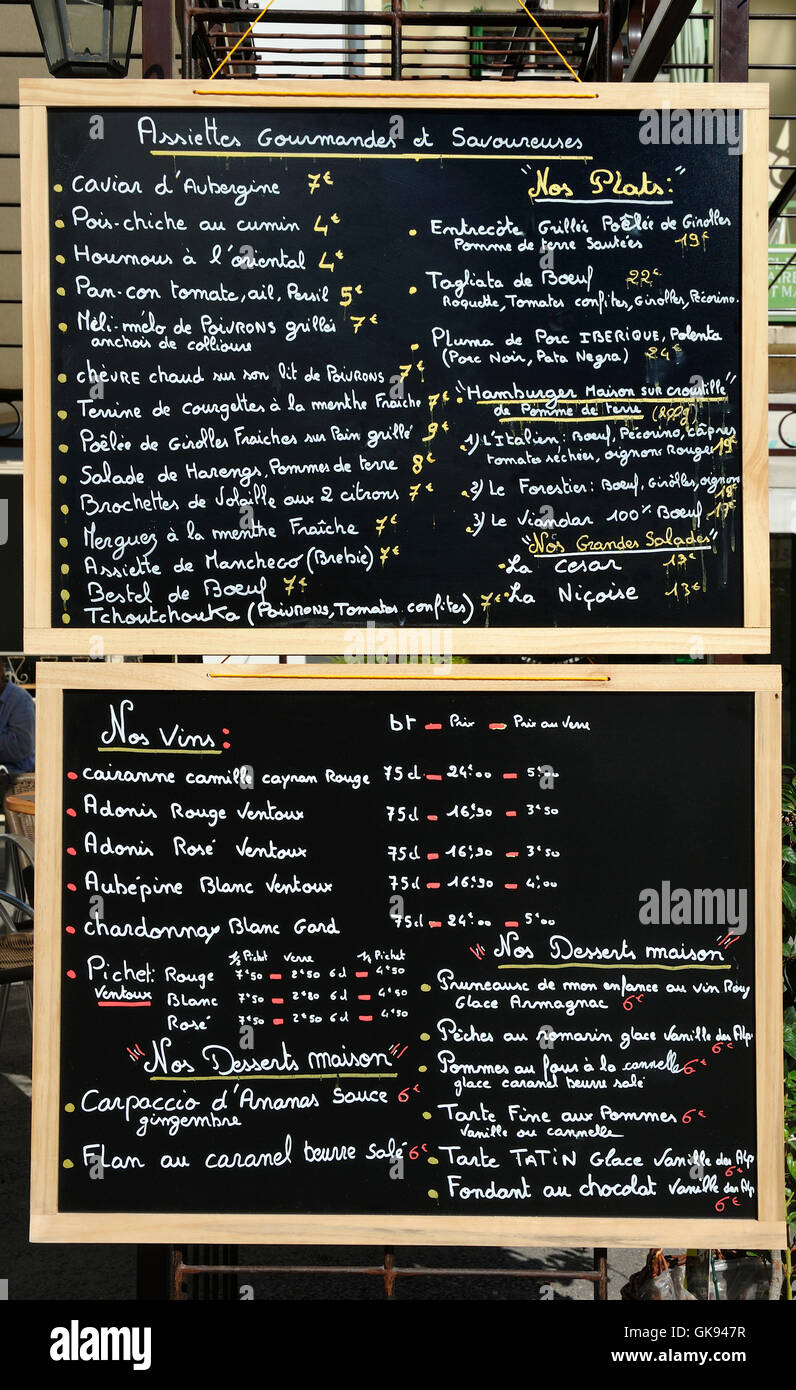 Assiettes Gourmandes et Savoureuses
Caviar d'Aubergine 7€
Pois-chiche au cumin 4€
Houmous à l'oriental 4€
Pan-con tomate, ail, Persil 5€
Méli-mélo de POIVRONS grillés 7€
anchois de collioure
chèvre chaud sur son lit de POIVRONS 7€
Terrine de courgettes à la menthe Fraîche 7€
Poêlée de Girolles Fraiches sur Pain grillé 9€
Salade de Harengs, Pommes de terre 8€
Brochettes de Volaille aux 2 citrons 7€
Merguez à la menthe Fraîche 7€
Assiette de Manchego (Brebie) 7€
Bestel de Boeuf 7€
Tchoutchouka (POIVRONS, Tomates confites) 7€
"Nos Plats:"
Entrecôte Grillée Poêlée de Girolles
Pomme de terre Sautées 19€
Tagliata de Boeuf 22€
Roquette, Tomates confites, Girolles, Pécorino.
Pluma de Porc IBERIQUE, Polenta
(Porc Noir, Pata Negra) 24€
"Hamburger Maison sur croustille"
de Pomme de terre (200g)
1) L'Italien: Boeuf, Pécorino, câpres
tomates séchées, oignons Rouges 19€
2) Le Forestier: Boeuf, Girolles, oignons 18€
3) Le Viandar 100% Boeuf 17€
"Nos Grandes Salades"
La César 13€
La Niçoise 13€
Nos Vins:
bt - Prix - Prix au Verre
cairanne camille cayran Rouge 75cl - 24€00 - 5€00
Adonis Rouge Ventoux 75cl - 16€90 - 3€50
Adonis Rosé Ventoux 75cl - 16€90 - 3€50
Aubépine Blanc Ventoux 75cl - 16€90 - 4€00
chardonnay Blanc Gard 75cl - 24€00 - 5€00
1/2 Pichet Verre 1/4 Pichet
Pichet: Rouge 7€50 - 2€50 6d - 4€50
Ventoux Blanc 7€50 - 2€80 6d - 4€50
Rosé 7€50 - 2€50 6d - 4€50
"Nos Desserts maison"
Carpaccio d'Ananas Sauce 6€
gingembre
Flan au caramel beurre salé 6€
"Nos Desserts maison"
Pruneause de mon enfance au vin Rouy
Glace Armagnac 6€
Pêches au romarin glace Vanille des Alp 6€
Pommes au four à la cannelle 6€
glace caramel beurre salé
Tarte Fine aux Pommes 6€
Vanille ou cannelle
Tarte TATIN Glace Vanille des Alp 6€
Fondant au chocolat Vanille des Alp 6€
alamy stock photo
GK947R
www.alamy.com